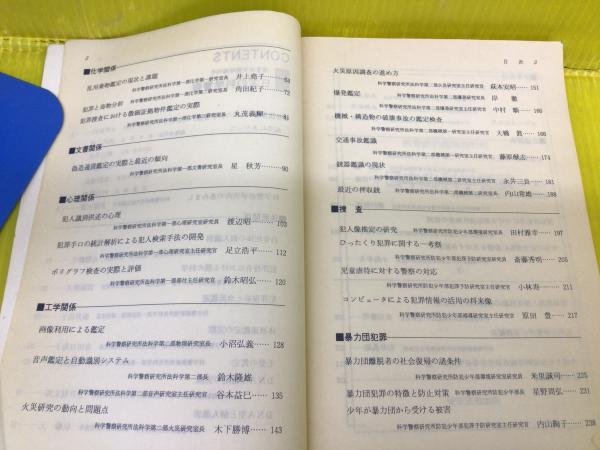 2
■化学関係
乱用薬物鑑定の現状と課題
科学警察研究所法科学第一部化学第一研究室長 井上堯子……64
犯罪と毒物分析 科学警察研究所法科学第一部化学第二研究室長 角田紀子……72
犯罪捜査における微細証拠物件鑑定の実際
科学警察研究所法科学第一部化学第三研究室長 丸茂義輝……81
■文書関係
偽造通貨鑑定の実際と最近の傾向
科学警察研究所法科学第一部文書研究室長 星 秋芳……90
■心理関係
犯人識別供述の心理
科学警察研究所法科学第一部心理研究室研究員 渡辺昭一……103
犯罪手口の統計解析による犯人検索手法の開発
科学警察研究所法科学第一部心理研究室主任研究官 足立浩平……112
ポリグラフ検査の実際と評価
科学警察研究所法科学第一部付主任研究官 鈴木昭弘……120
■工学関係
画像利用による鑑定
科学警察研究所法科学第二部物理研究室長 小沼弘義……128
音声鑑定と自動識別システム
科学警察研究所法科学第二部長 鈴木隆雄
科学警察研究所法科学第二部音声研究室主任研究官 谷本益巳……135
火災研究の動向と問題点
科学警察研究所法科学第二部火災研究室長 木下勝博……143
目 次 3
火災原因調査の進め方
科学警察研究所法科学第二部火災研究室主任研究官 萩本安昭……151
爆発鑑定 科学警察研究所法科学第二部爆発研究室長 岸 徹
科学警察研究所法科学第二部爆発研究室主任研究官 中村 順……166
機械・構造物の破壊事故の鑑定検査
科学警察研究所法科学第二部機械第一研究室主任研究官 大橋 眞……166
交通事故鑑識
科学警察研究所法科学第二部機械第一研究室主任研究官 藤原健志……174
銃器鑑識の現状
科学警察研究所法科学第二部機械第二研究室主任研究官 永井三良……181
最近の押収銃 科学警察研究所法科学第二部機械第二研究室研究官 内山常雄……188
■捜 査
犯人像推定の研究 科学警察研究所防犯少年部補導研究室長 田村雅幸……197
ひったくり犯罪に関する一考察
科学警察研究所防犯少年部犯罪予防研究室長 斎藤秀明……205
児童虐待に対する警察の対応
科学警察研究所防犯少年部犯罪予防研究室主任研究官 小林寿一……211
コンピュータによる犯罪情報の活用の将来像
科学警察研究所防犯少年部補導研究室主任研究官 原田 豊……217
■暴力団犯罪
暴力団離脱者の社会復帰の諸条件
科学警察研究所防犯少年部環境研究室研究員 米里誠司……225
暴力団犯罪の特徴と防止対策 科学警察研究所防犯少年部長 星野周弘……231
少年が暴力団から受ける被害
科学警察研究所防犯少年部犯罪予防研究室主任研究官 内山絢子……238